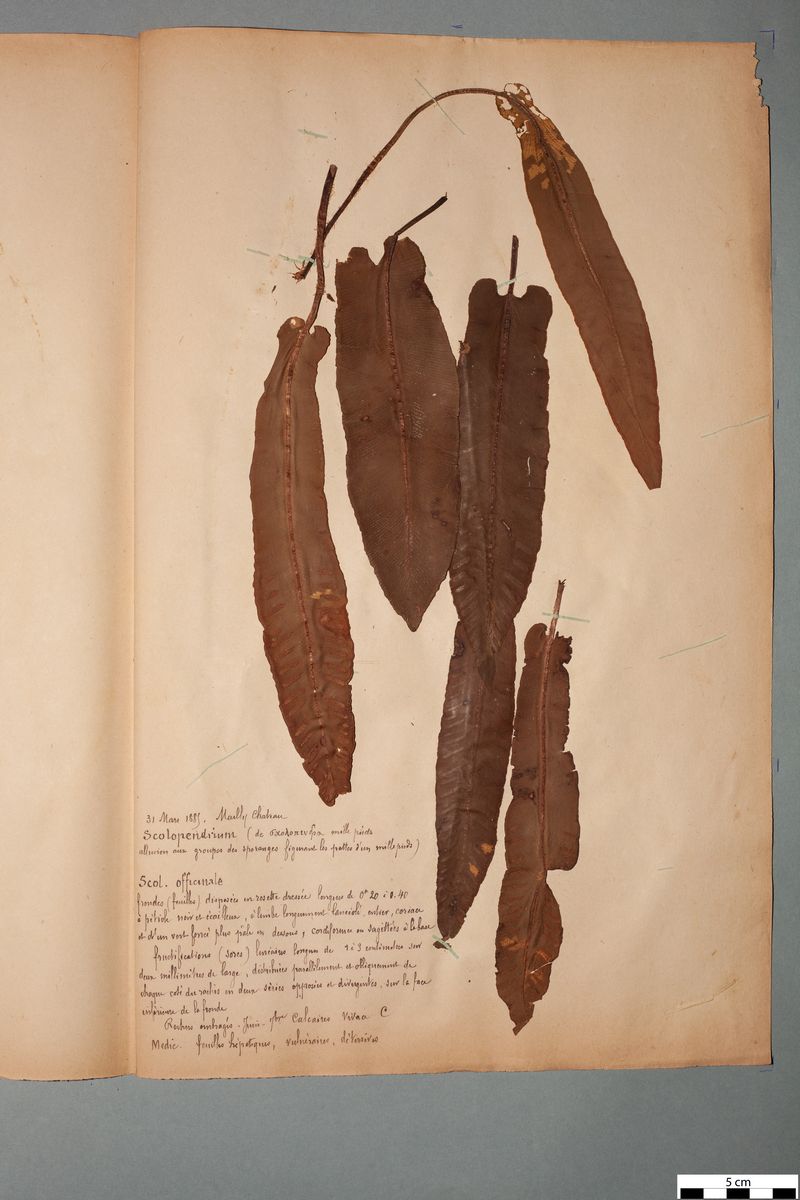 31 Mars 1885. Mailly Chateau
Scolopendrium (de σκολοπενδρα mille pieds
allusion aux groupes des sporanges figurant les pattes d'un mille pieds)
Scol. officinale
frondes (feuilles) disposées en rosette dressée longues de 0m 20 à 0.40
à pétiole noir et écailleux, à limbe longuement lancéolé, entier, coriace
et d'un vert foncé plus pâle en dessous, cordiforme ou sagittées à la base
fructifications (sores) linéaires longues de 1 à 3 centimètres sur
deux millimètres de large, distribuées parallèlement et obliquement de
chaque coté du rachis en deux séries opposées et divergentes, sur la face
inférieure de la fronde
Rochers ombragés. Juin - 7bre Calcaires Vivace C
Medic. feuilles hépatiques, vulnéraires, détersives
5 cm